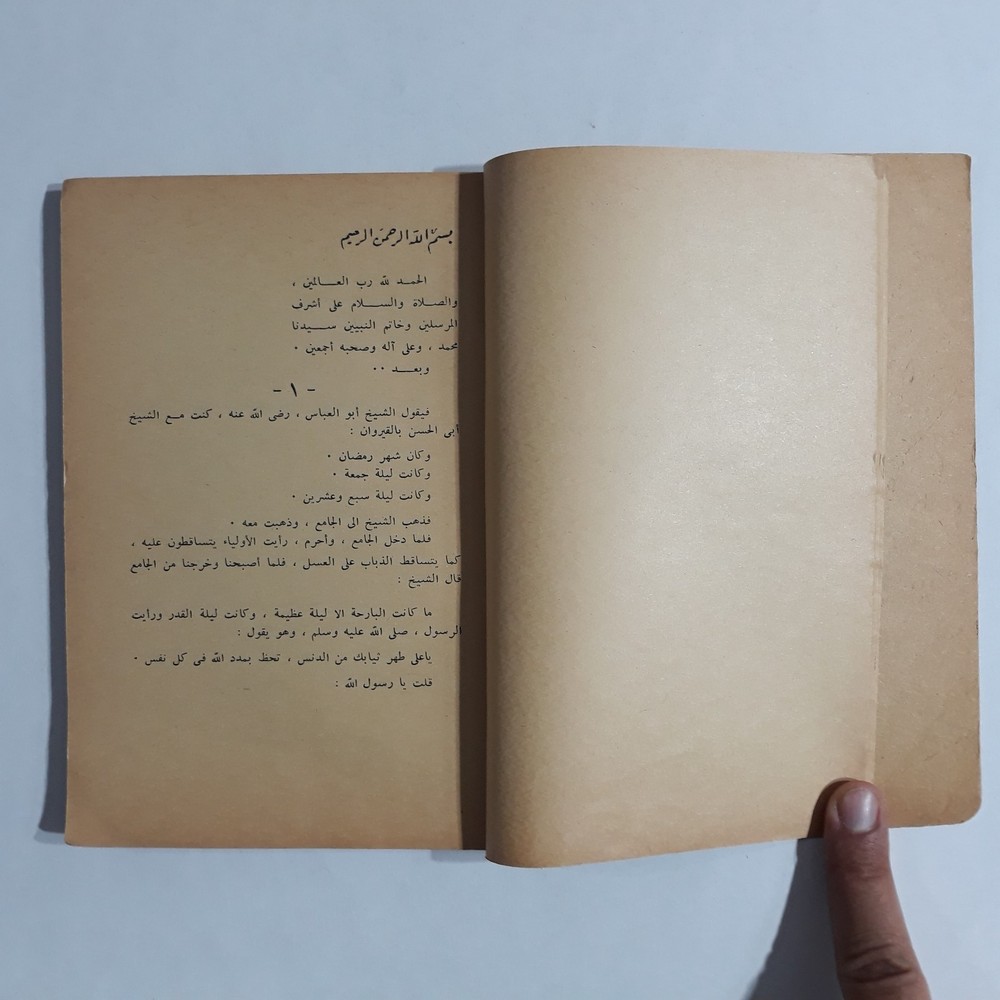 بسم الله الرحمن الرحيم
الحمد لله رب العالمين ،
والصلاة والسلام على أشرف
المرسلين وخاتم النبيين سيدنا
محمد ، وعلى آله وصحبه أجمعين ٠
وبعد ٠٠
- ١ -
فيقول الشيخ أبو العباس ، رضى الله عنه ، كنت مع الشيخ
أبى الحسن بالقيروان :
وكان شهر رمضان ٠
وكانت ليلة جمعة ٠
وكانت ليلة سبع وعشرين ٠
فذهب الشيخ الى الجامع ، وذهبت معه ٠
فلما دخل الجامع ، وأحرم ، رأيت الأولياء يتساقطون عليه ،
كما يتساقط الذباب على العسل ، فلما أصبحنا وخرجنا من الجامع
قال الشيخ :
ما كانت البارحة الا ليلة عظيمة ، وكانت ليلة القدر ورأيت
الرسول ، صلى الله عليه وسلم ، وهو يقول :
ياعلى طهر ثيابك من الدنس ، تحظ بمدد الله فى كل نفس ٠
قلت يا رسول الله :